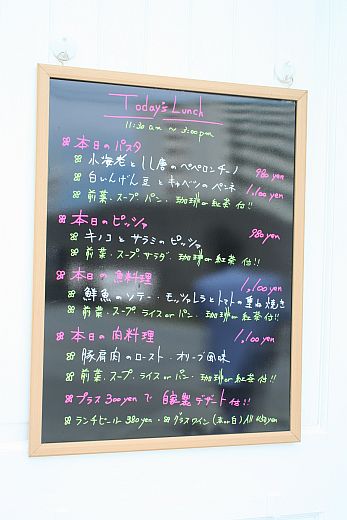 Today's Lunch
11:30 am ~ 3:00 pm
本日のパスタ
小海老としし唐のペペロンチーノ 980 yen
白いんげん豆とキャベツのペンネ 1,100 yen
前菜・スープ・パン・珈琲or紅茶付!!
本日のピッツァ
キノコとサラミのピッツァ 980 yen
前菜・スープ・サラダ・珈琲or紅茶付!!
本日の魚料理 1,100 yen
鮮魚のソテー・モッツァレラとトマトの重ね焼き
前菜・スープ・ライスorパン・珈琲or紅茶付!!
本日の肉料理 1,100 yen
豚肩肉のロースト・オリーブ風味
前菜・スープ・ライスorパン・珈琲or紅茶付!!
プラス300yenで自家製デザート付!!
ランチビール 380yen・グラスワイン(赤or白)